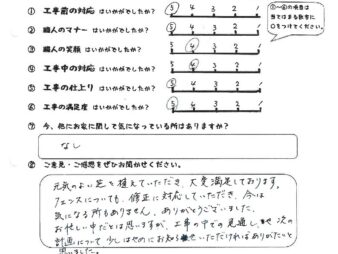 ①〜⑥の項目は
当てはまる数字に
○をつけてください。
① 工事前の対応 はいかがでしたか? 5 4 3 2 1
② 職人のマナー はいかがでしたか? 5 4 3 2 1
③ 職人の笑顔 はいかがでしたか? 5 4 3 2 1
④ 工事中の対応 はいかがでしたか? 5 4 3 2 1
⑤ 工事の仕上り はいかがでしたか? 5 4 3 2 1
⑥ 工事の満足度 はいかがでしたか? 5 4 3 2 1
⑦ 今、他にお家に関して気になっている所はありますか?
なし
⑧ ご意見・ご感想をぜひお聞かせください。
元気のよい芝を植えていただき、大変満足しております。
フェンスについても、修正に対応していただき、今は
気になる所もありません。ありがとうございました。
お忙しい中だとは思いますが、工事の中での見通し、や 次の
計画について少しはやめにお知らせいただければありがたいと
思いました。